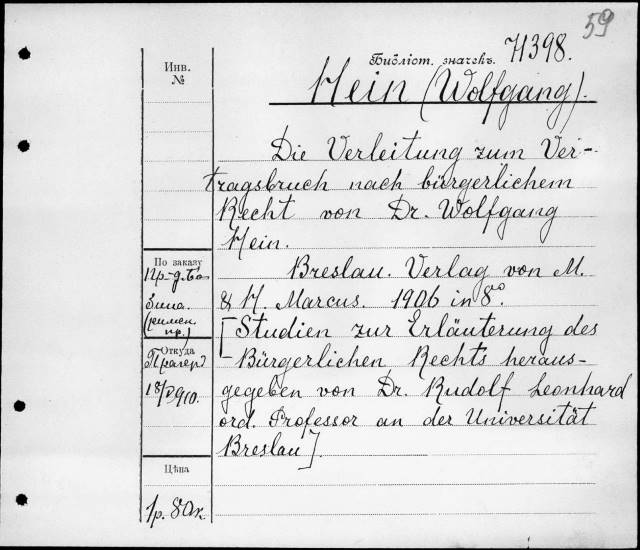 59
Библіот. значекъ. 71398.
Hein (Wolfgang).
Die Verleitung zum Ver-
tragsbruch nach bürgerlichem
Recht von Dr. Wolfgang
Hein.
Breslau. Verlag von M.
& H. Marcus. 1906 in 8º.
[Studien zur Erläuterung des
Bürgerlichen Rechts heraus-
gegeben von Dr. Rudolf Leonhard
ord. Professor an der Universität
Breslau].
Инв.
№
По заказу
Откуда
Цѣна
1р. 80к.